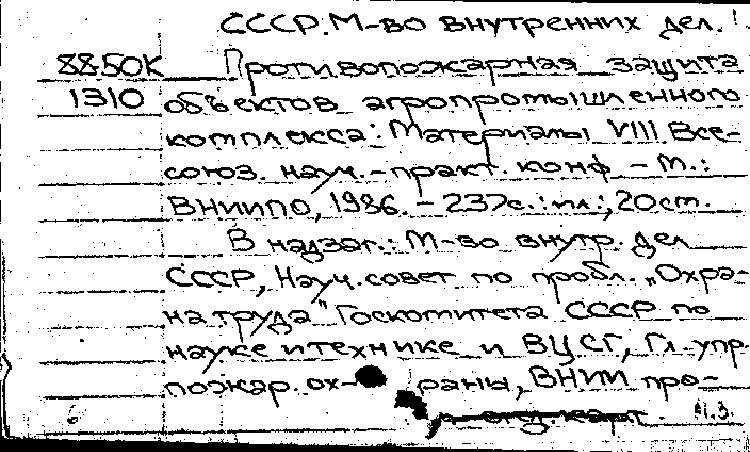 СССР. М-во внутренних дел.
8850К Противопожарная защита
1310 объектов агропромышленного
комплекса: Материалы VIII Все-
союз. науч.-практ. конф – М.:
ВНИИПО, 1986. – 237с.: ил.; 20см.
В надзаг.: М-во внутр. дел
СССР, Науч. совет по пробл. „Охра-
на труда" Госкомитета СССР по
науке и технике и ВЦСПС, Гл. упр.
пожар. ох- раны, ВНИИ про-